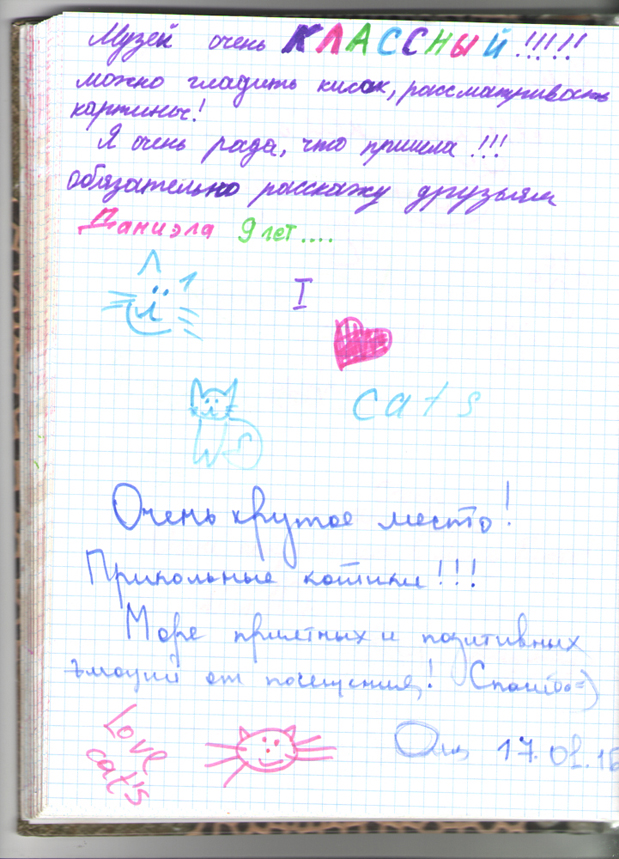 Музей очень КЛАССНЫЙ!!!!!
можно гладить кисок, рассматривать
картины!
Я очень рада, что пришла!!!
обязательно расскажу друзьям
Даниэла 9 лет....
I
cats
Очень крутое место!
Прикольные котики!!!
Море приятных и позитивных
эмоций от посещения! Спасибо=)
Love
cat's
17.01.16